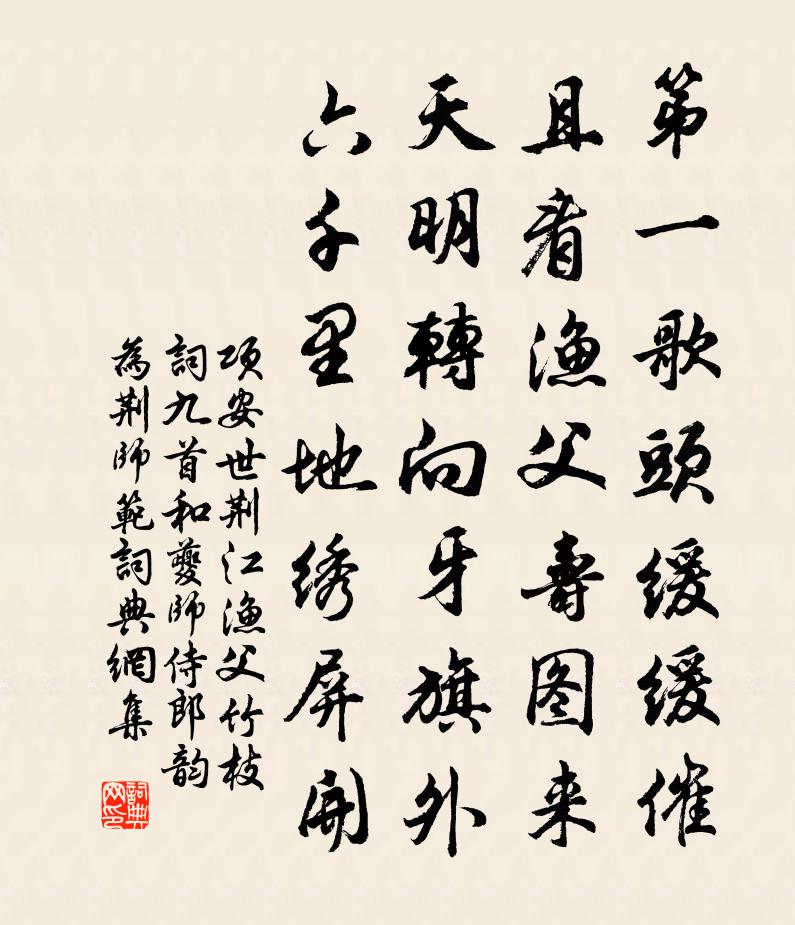 第一歌頭緩緩催
且看漁父壽图来
天明轉向牙旗外
六千里地绣屏開
项安世荆江漁父竹枝
詞九首和夔帅侍郎韵
為荆帅範詞典網集
詞典网印